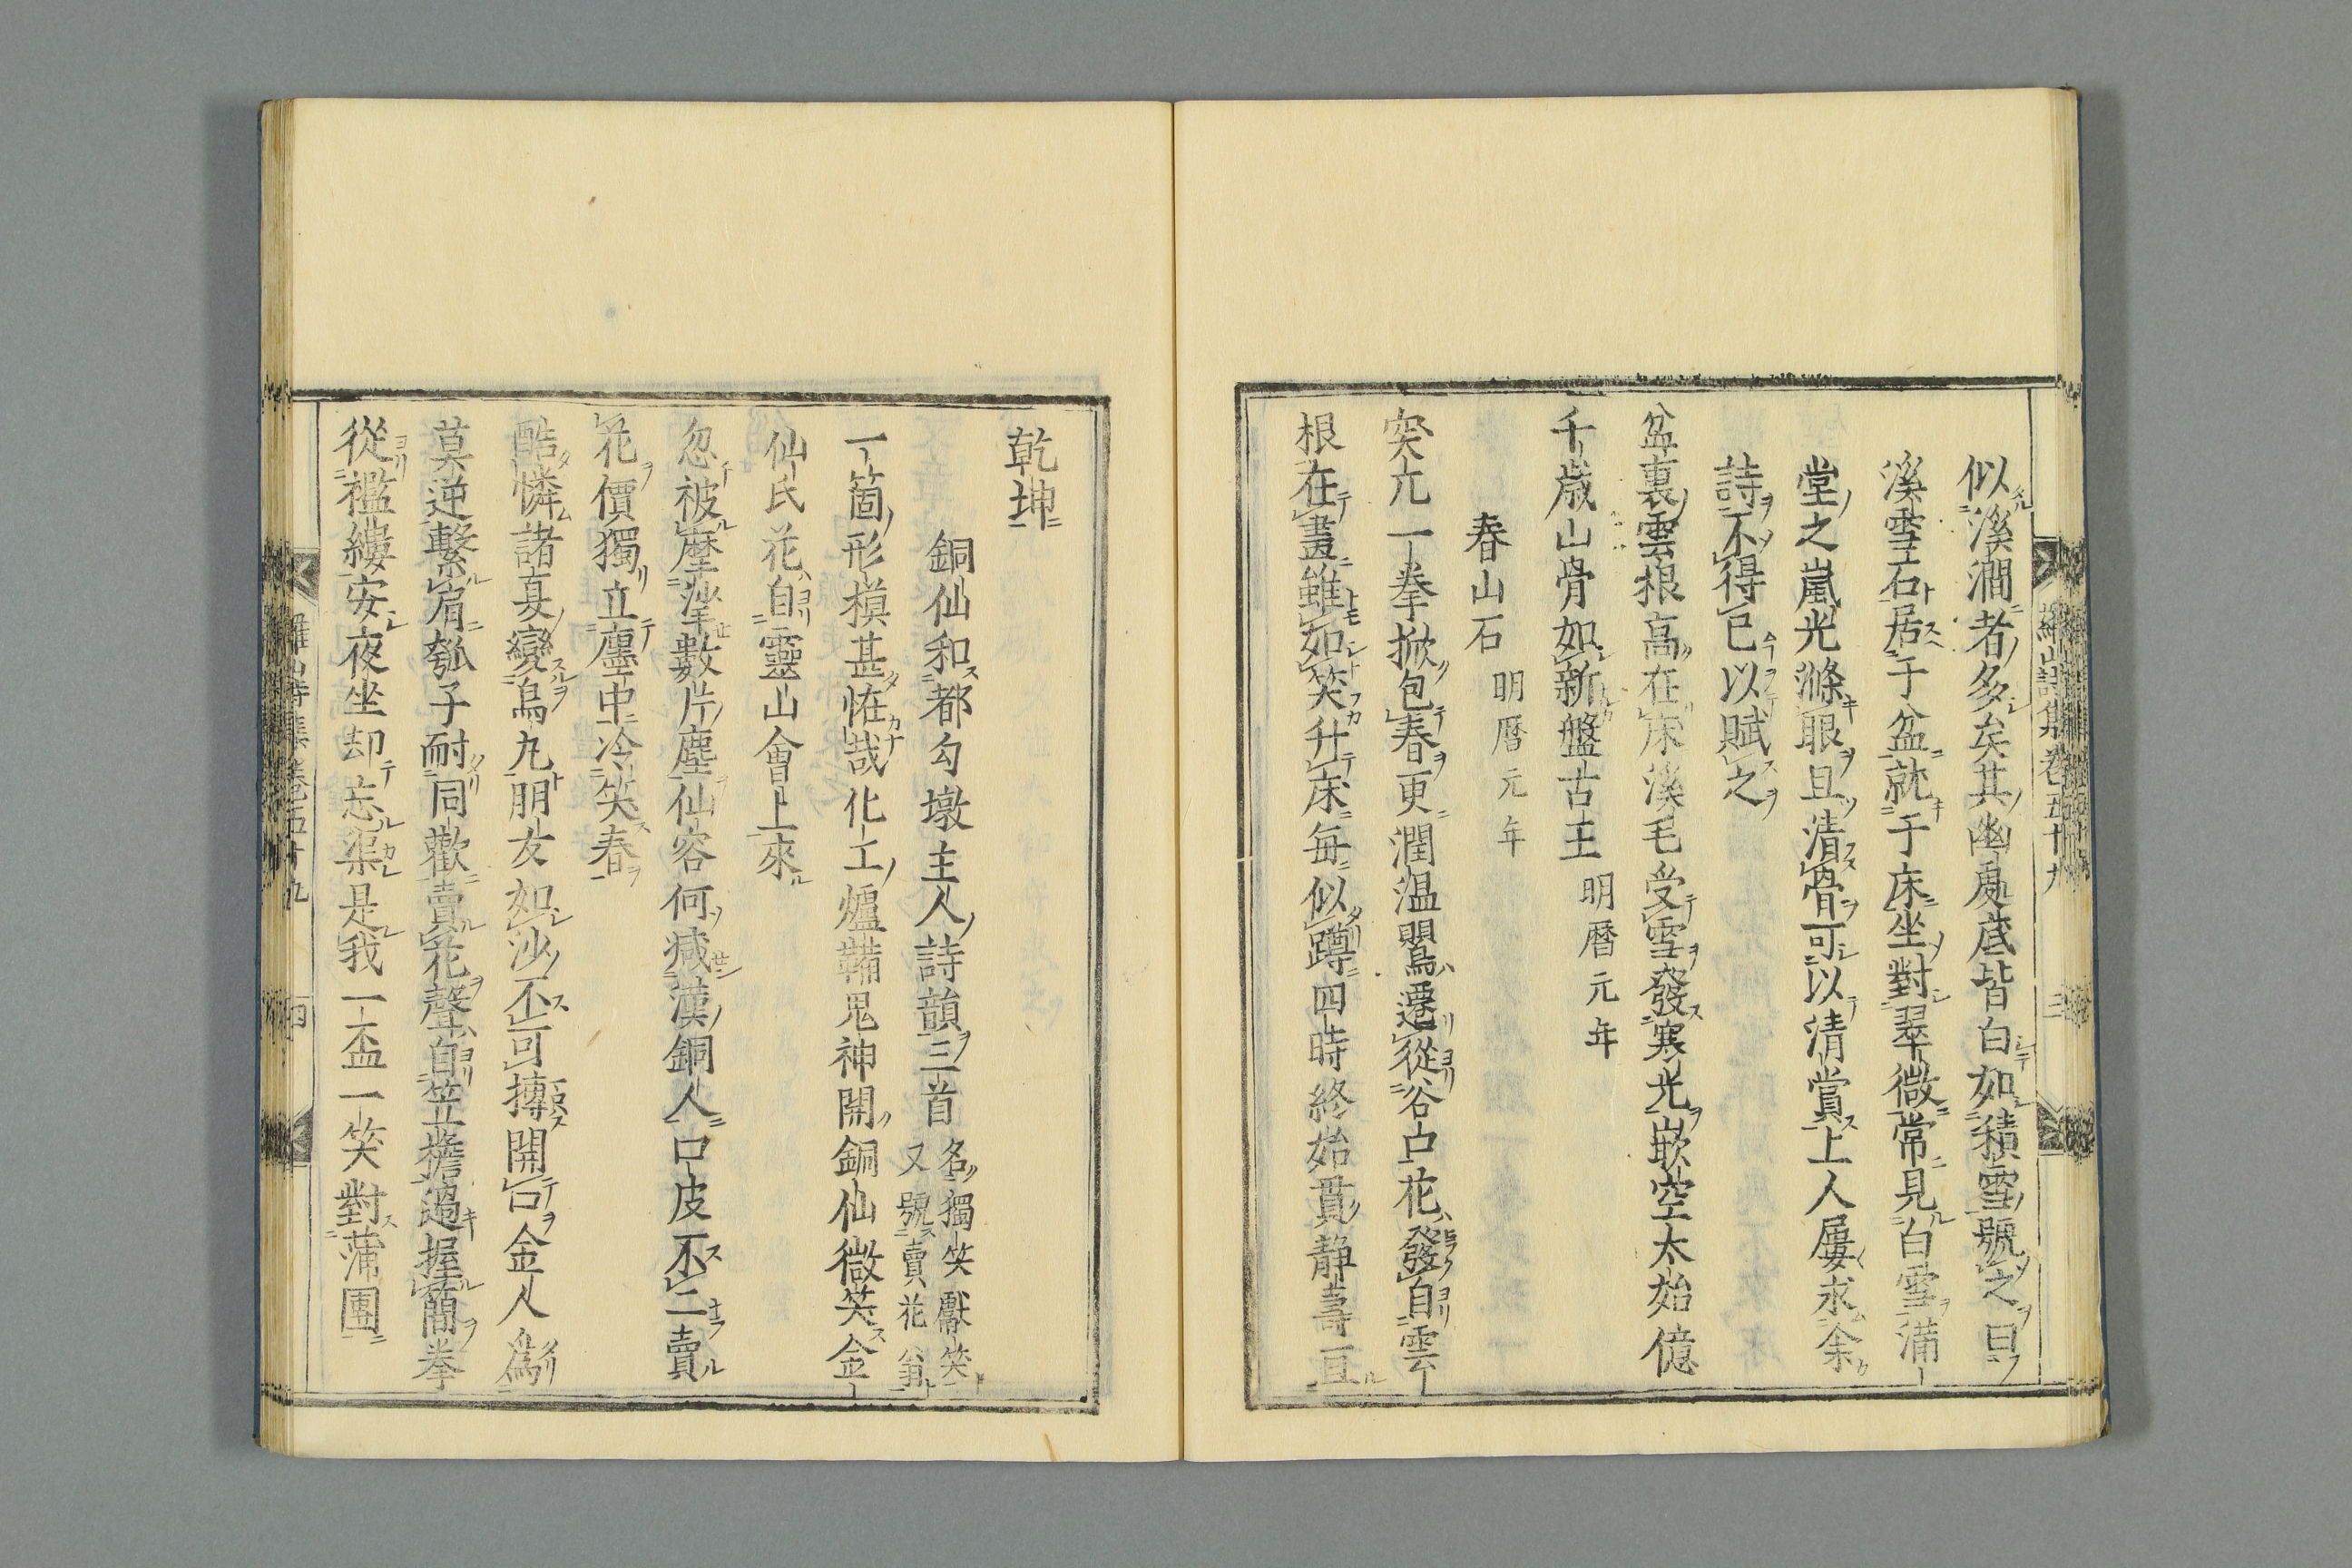 似溪澗者多矣其幽處底皆白如積雪號之曰
溪雪石居于盆就于床坐對翠微常見白雪滿
堂之嵐光滌眼且清骨可以清賞上人屢求余
詩不得已以賦之
盆裏雲根高在床溪毛受雪發寒光嵌空太始億
千歳山骨如新盤古王 明暦元年
春山石 明暦元年
突亢一拳掀包春更潤温鸎遷從谷口花發自雲
根在晝雖如笑升床毎似蹲四時終始貫靜壽亘
乾坤
銅仙和都勾墩主人詩韻三首 名獨笑獻笑
又號賣花翁
一箇形模甚恠哉化工爐鞴鬼神開銅仙微笑金
仙氏花自靈山會上來
忽被摩挲數片塵仙容何減漢銅人口皮不二賣
花價獨立廛中冷笑春
酷憐諸夏變烏九朋友如沙不可摶開口金人爲
莫逆繫肩瓠子耐同歡賣花聲自笠簷過握蘭拳
從襤縷安夜坐却忘渠是我一盃一笑對蒲團
羅山詩集卷五十九 三
羅山詩集卷五十九 四